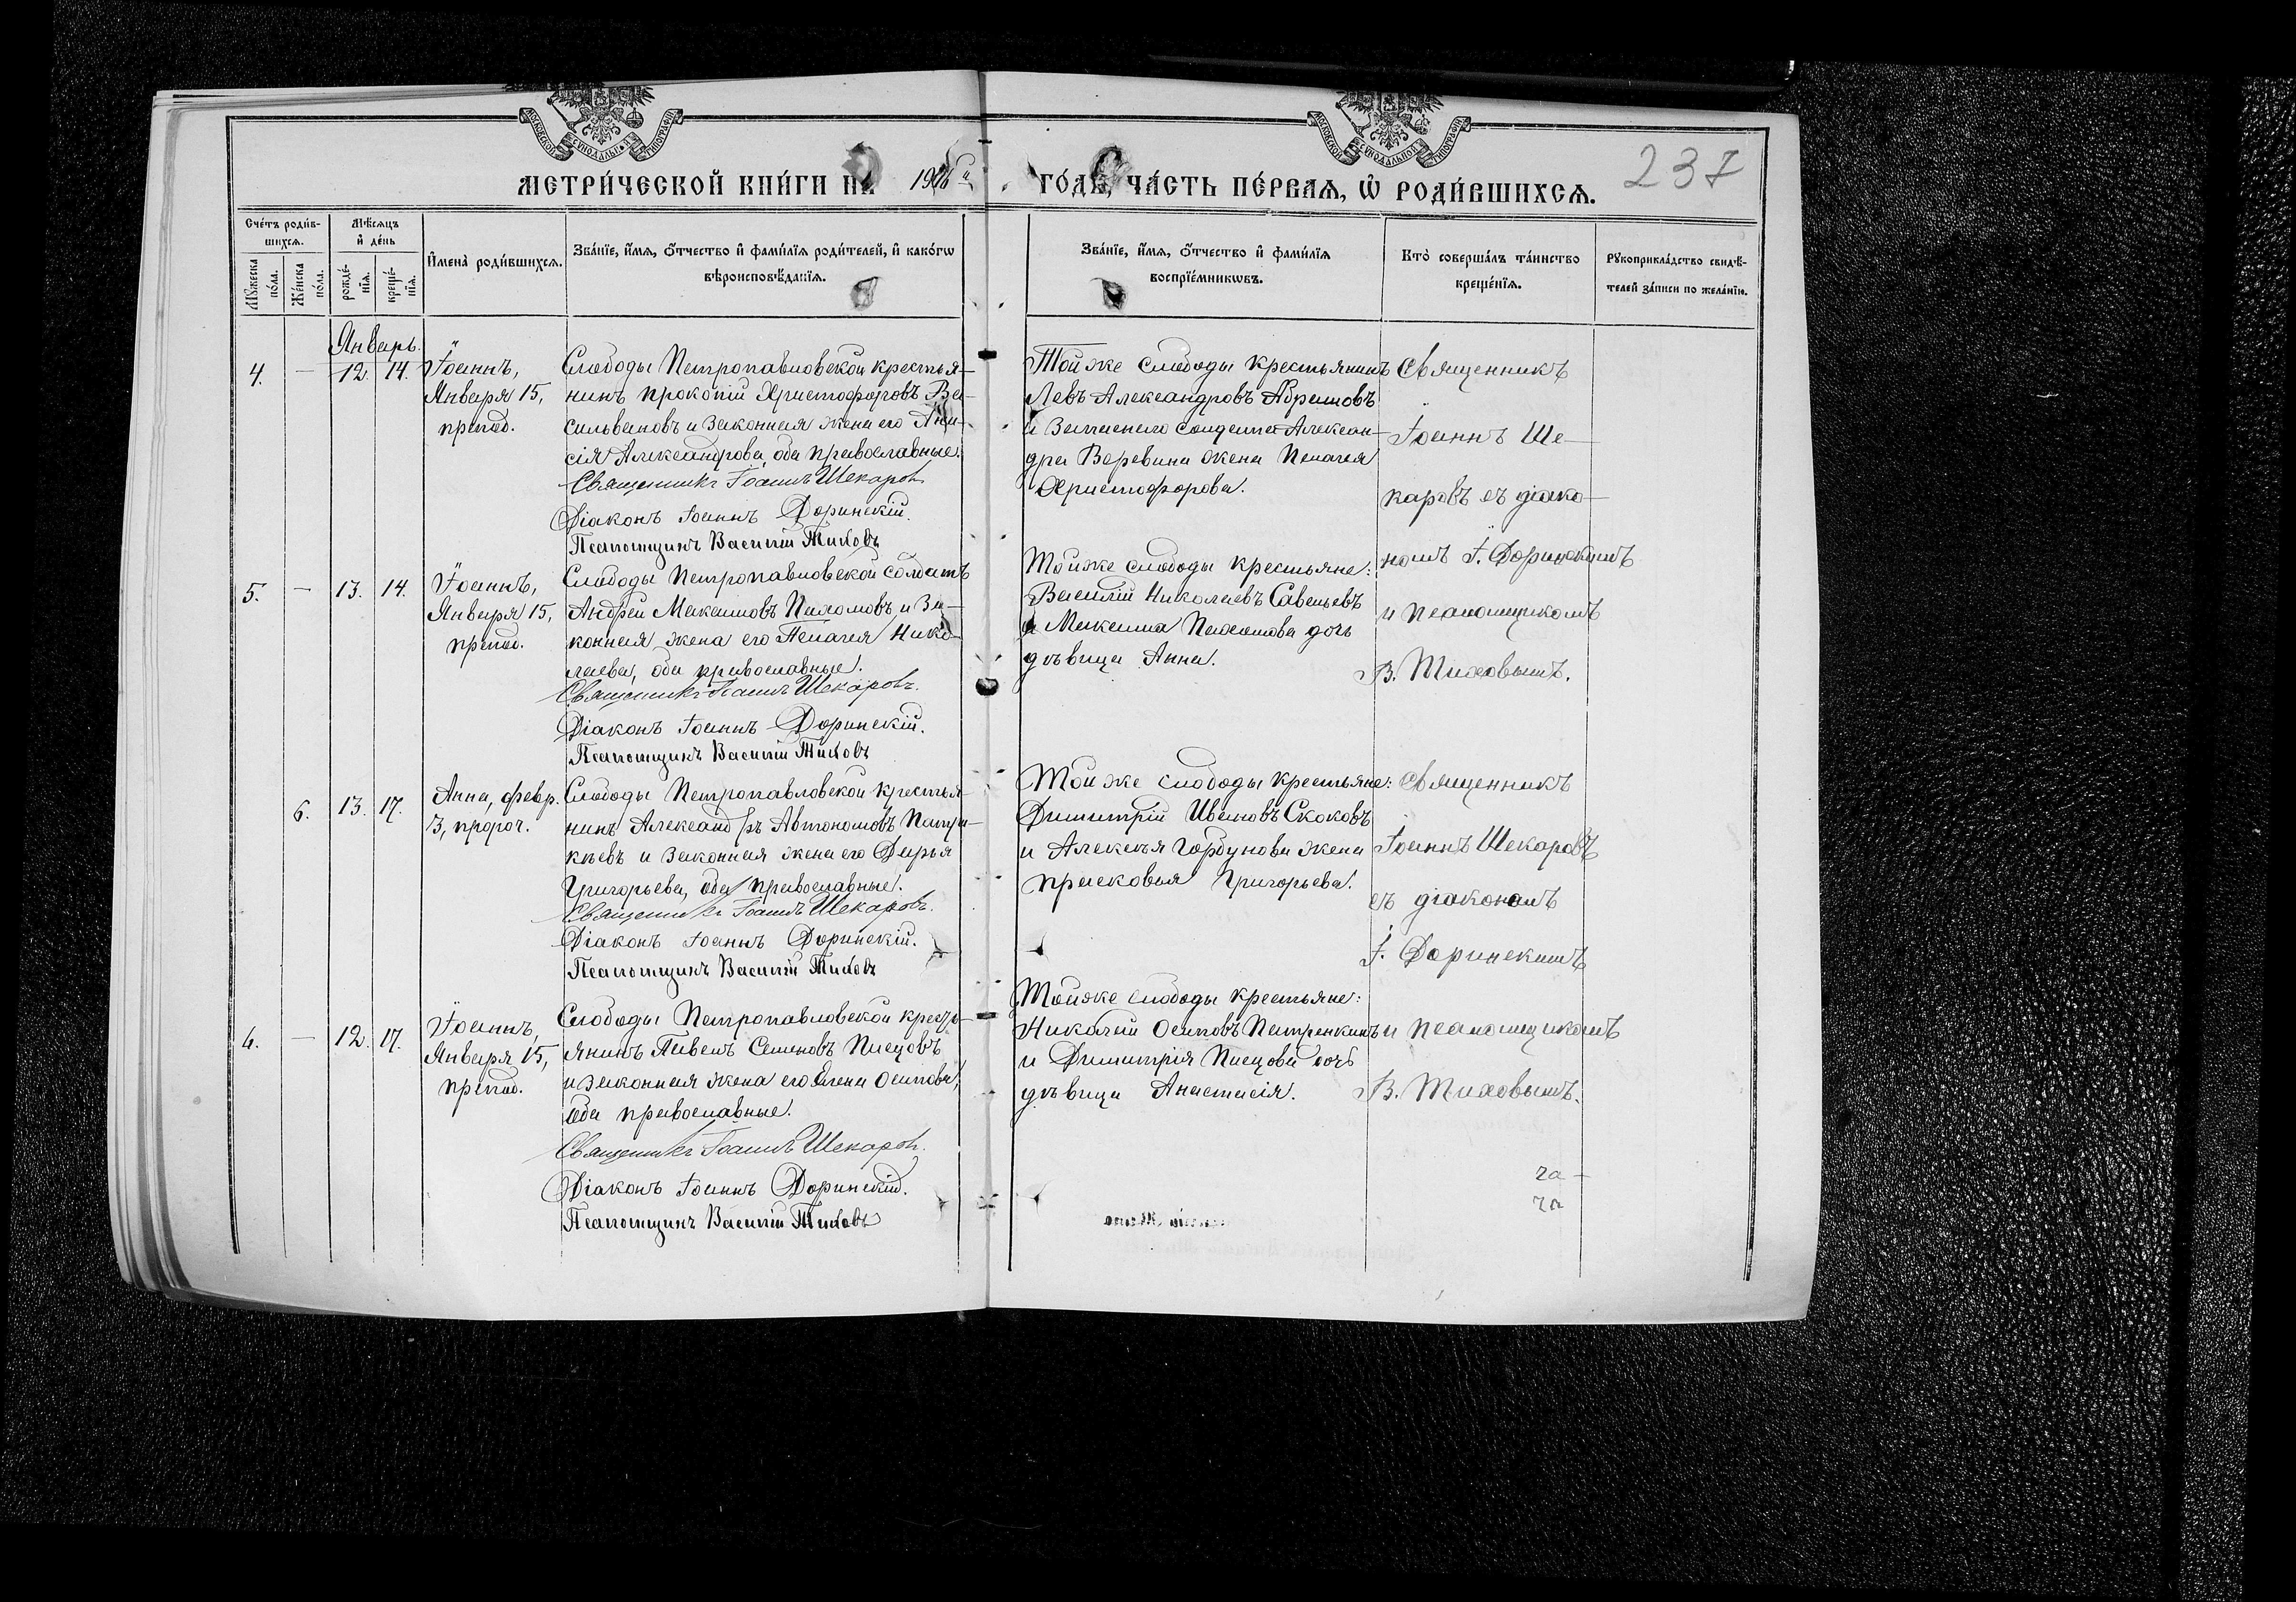 МЕТРИ́ЧЕСКОЙ КНИ́ГИ НА 1916й ГО́ДЪ, ЧА́СТЬ ПЕ́РВАѦ, Ѽ РОДИ́ВШИХСѦ.
237
Сче́тъ роди́в-
шихсѧ.
Мѣ́сѧцъ
и҆ де́нь
И҆мена̀ роди́вшихсѧ.
Зва́нїе, и҆́мѧ, о҆́тчество и҆ фами́лїѧ роди́телей, и҆ како́гѡ
вѣроисповѣ́данїѧ.
Зва́нїе, и҆́мѧ, о҆́тчество и҆ фами́лїѧ
воспрїе́мникѡвъ.
Кто̀ соверша́лъ та́инство
креще́нїѧ.
Рꙋкоприкла́дство свидѣ́-
телей за́писи по жела́нїю.
Мꙋ́жеска
по́ла.
Же́нска
по́ла.
рожде́-
нїѧ.
креще́-
нїѧ.
Январь.
4. — 12. 14.
Іоаннъ,
Января 15,
препод.
Слободы Петропавловской крестья-
нинъ Прокопій Христофоровъ Ва-
сильвановъ и законная жена его Ани-
сія Александрова, оба православные.
Священникъ Іоаннъ Шекаровъ
Діаконъ Іоаннъ Доринскій.
Псаломщикъ Василій Тиховъ
Той же слободы крестьянинъ
Левъ Александровъ Абрамовъ
и запаснаго солдата Алексан-
дра Веревина жена Пелагея
Христофорова.
Священникъ
Іоаннъ Ше-
каровъ съ діако-
номъ І. Доринскимъ
и псаломщикомъ
В. Тиховымъ.
5. — 13. 14.
Іоаннъ,
Января 15,
препод.
Слободы Петропавловской солдатъ
Андрей Максимовъ Пахомовъ и за-
конная жена его Пелагея Нико-
лаева, оба православные.
Священникъ Іоаннъ Шекаровъ.
Діаконъ Іоаннъ Доринскій.
Псаломщикъ Василій Тиховъ
Той же слободы крестьяне:
Василій Николаевъ Савельевъ
и Максима Пахомова дочь
дѣвица Анна.
6. 13. 17.
Анна, февр.
3, пророч.
Слободы Петропавловской крестья-
нинъ Александръ Автономовъ
и законная жена его Дарья
Григорьева, оба православные.
Священникъ Іоаннъ Шекаровъ.
Діаконъ Іоаннъ Доринскій.
Псаломщикъ Василій Тиховъ
Той же слободы крестьяне:
Димитрій Ивановъ Скоковъ
и Алексѣя Горбунова жена
Прасковья Григорьева.
Священникъ
Іоаннъ Шекаровъ
съ діакономъ
І. Доринскимъ
и псаломщикомъ
В. Тиховымъ.
6. — 12. 17.
Іоаннъ,
Января 15,
препод.
Слободы Петропавловской кресть-
янинъ Павелъ Семеновъ Писцовъ
и законная жена его Елена Осипова,
оба православные.
Священникъ Іоаннъ Шекаровъ.
Діаконъ Іоаннъ Доринскій.
Псаломщикъ Василій Тиховъ
Той же слободы крестьяне:
Николай Осиповъ Петренкинъ
и Димитрія Писцова дочь
дѣвица Анастасія.
ча-
ча